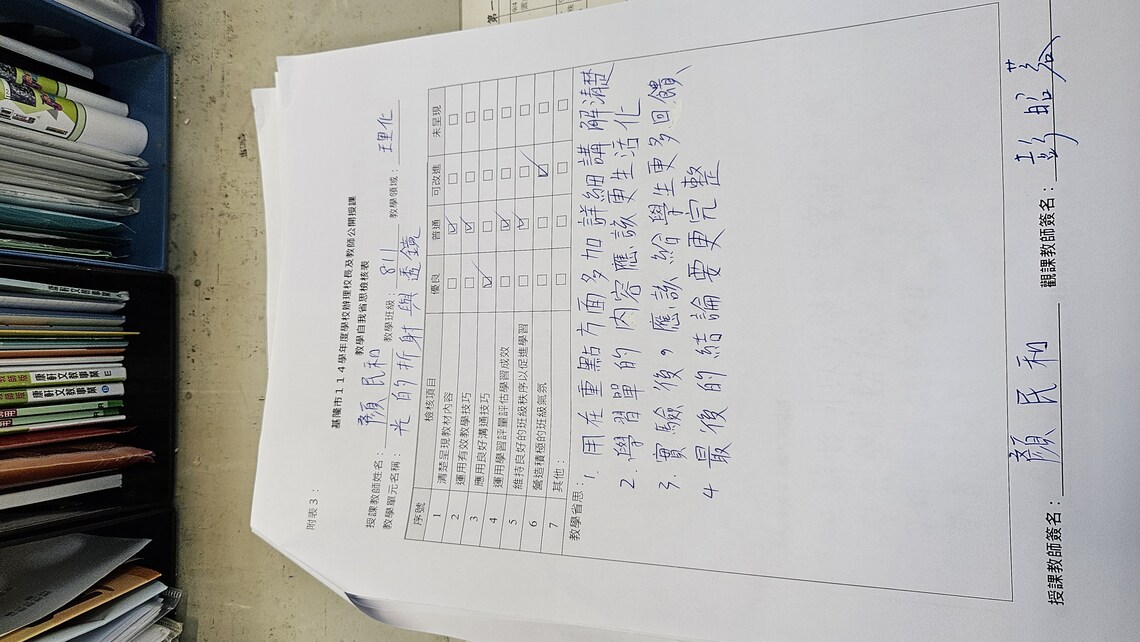 附表3：
基隆市114學年度學校辦理校長及教師公開授課
教學自我省思檢核表
授課教師姓名：顏民和 教學班級：811 教學領域：理化
教學單元名稱：光的折射與透鏡
序號 檢核項目 優良 普通 可改進 未呈現
1 清楚呈現教材內容 □ ☑ □ □
2 運用有效教學技巧 □ ☑ □ □
3 應用良好溝通技巧 ☑ □ □ □
4 運用學習評量評估學習成效 □ ☑ □ □
5 維持良好的班級秩序以促進學習 □ ☑ □ □
6 營造積極的班級氣氛 □ □ ☑ □
7 其他： □ □ □ □
教學省思：
1. 用在重點方面多加詳細講解清楚
2. 學習單的內容應該更生活化
3. 實驗後，應該給學生更多回饋、
4 最後的結論要更完整
授課教師簽名：顏民和 觀課教師簽名：彭昭
康軒文教事業
康軒文教事業 E
康軒文教事業
第一